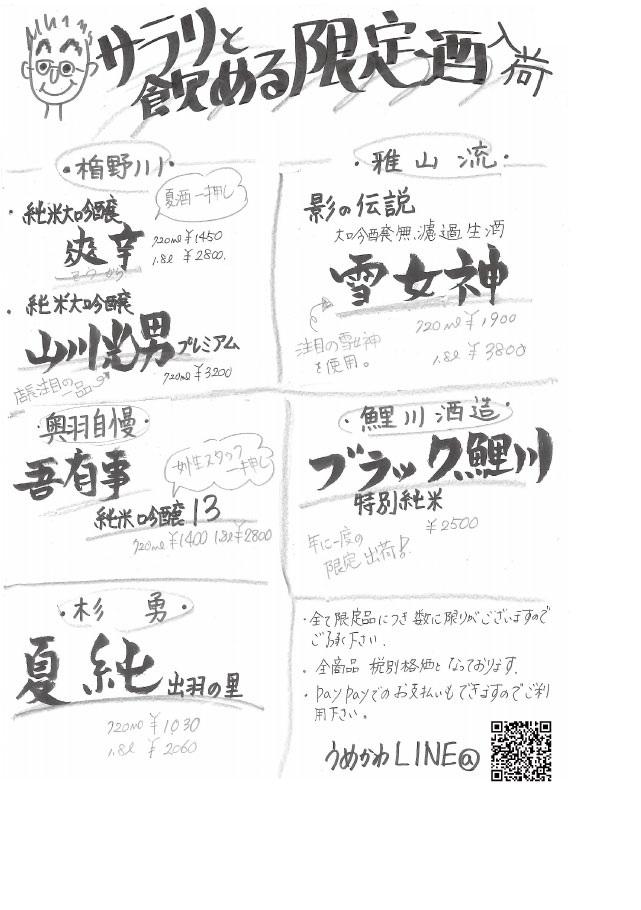 サラリと
飲める限定酒
入荷
・楯野川・
夏酒一押し
・純米大吟醸
爽辛
720ml ¥1450
1.8l ¥2800.
・純米大吟醸
山川光男プレミアム
720ml ¥3200
店長注目の
一品
・雅山流・
影の伝説
大吟醸無濾過生酒
雪女神
注目の雪女神
を使用。
720ml ¥1900
1.8l ¥3800
・奥羽自慢・
吾有事
スタッフ
一押し
純米吟醸 13
720ml ¥1400 1.8l ¥2800
・鯉川酒造・
ブラック鯉川
特別純米
¥2500
年に一度の
限定出荷!
・杉勇・
夏純 出羽の里
720ml ¥1030
1.8l ¥2060
・全て限定品につき数に限りがございますので
ご了承下さい.
・全商品 税別格価となっております.
・paypayでのお支払いもできますのでご利
用下さい。
うめかわLINE@